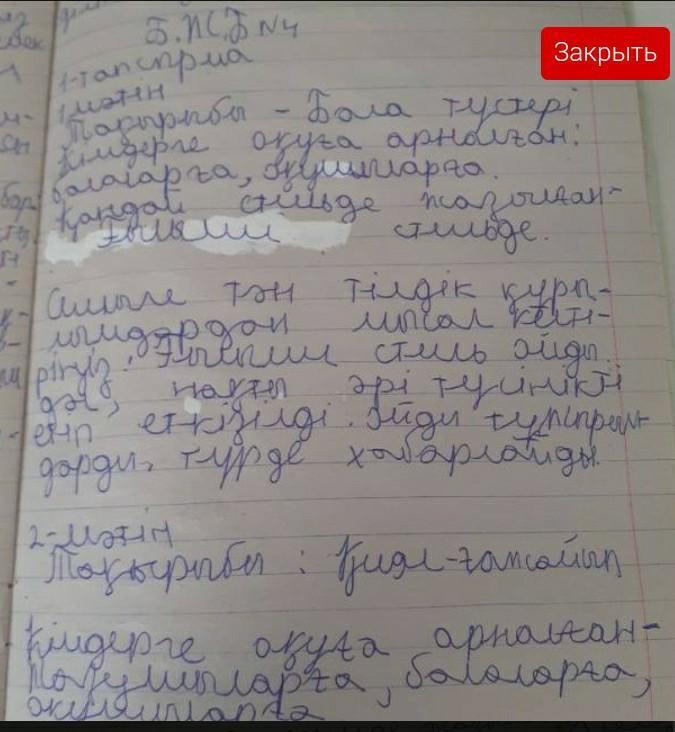 Б.Ж.Б №4
Закрыть
1-тапсырма
1 мәтін
Тақырыбы - Бала түстері
Кімдерге оқуға арналған:
балаларға, оқушыларға.
Қандай стильде жазылған-
Ғылыми стильде.
Стильге тән тілдік құры-
лымдардан мысал келті-
ріңіз. Ғылыми стиль ойды
дәл, нақты әрі түсінікті
етіп еткізілді. Ойди
түрде хабарлайды.
2-мәтін
Тақырыбы : Қиял-ғажайып
Кімдерге оқуға арналған-
балаларға,
оқушыларға